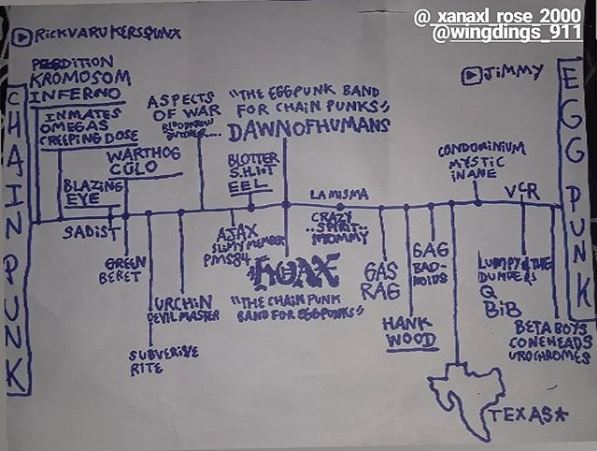 @_xanaxl_rose_2000
@wingdings_911
RICKVARUKERSPUNX
JIMMY
CHAIN PUNK
EGG PUNK
PERDITION
KROMOSOM
INFERNO
INMATES
OMEGAS
CREEPING DOSE
WARTHOG
CULO
BLAZING
EYE
SADIST
GREEN
BERET
URCHIN
DEVIL MASTER
SUBVERSIVE
RITE
ASPECTS
OF WAR
AJAX
SLIMY MEMBER
PMS84
BLOTTER
S.H.I.T
EEL
"THE EGGPUNK BAND
FOR CHAIN PUNKS"
DAWN OF HUMANS
HOAX
"THE CHAIN PUNK
BAND FOR EGGPUNKS"
LA MISMA
CRAZY
SPIRIT
MOMMY
GAS
RAG
HANK
WOOD
GAG
BAD-
NOIDS
CONDOMINIUM
MYSTIC
INANE
TEXAS*
VCR
LUMPY & THE
DUMPERS
Q
BIB
BETA BOYS
CONEHEADS
UROCHROMES